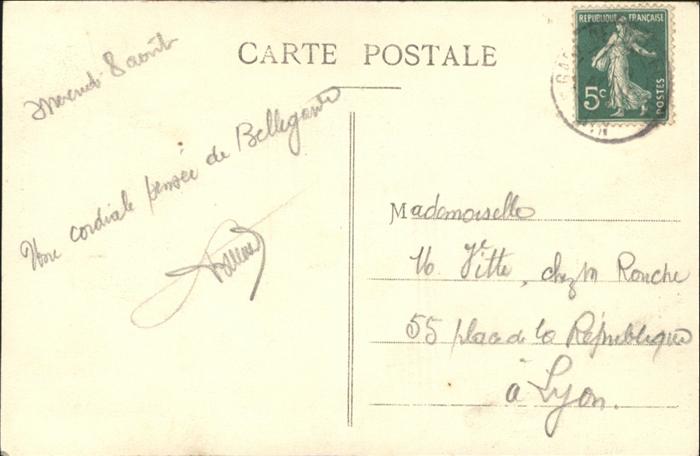 CARTE POSTALE
REPUBLIQUE FRANÇAISE
5c
POSTES
8 août
Une cordiale pensée de Bellegarde
Mademoiselle
Vitte, chez M Ronche
55 place de la République
à Lyon.